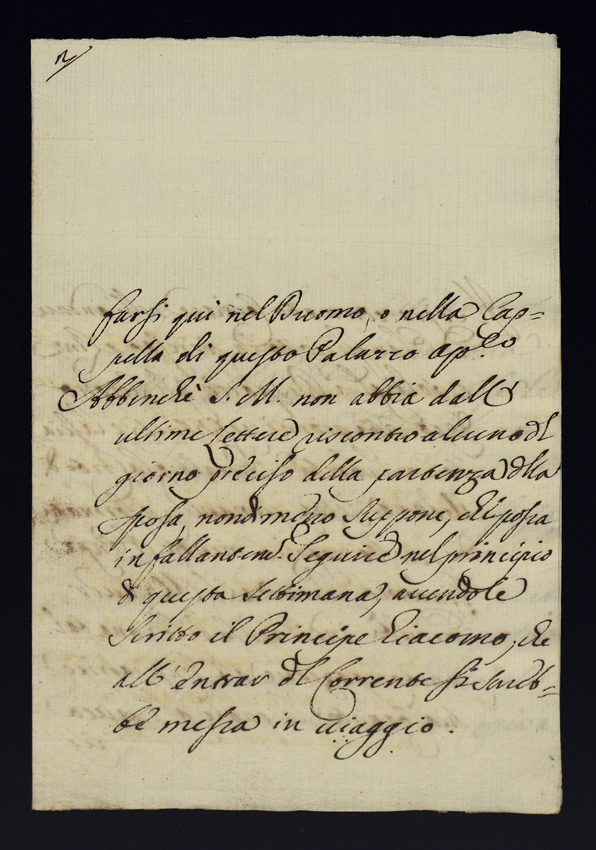 2/
farsi qui nel Duomo, o nella Cap=
pella di questo Palazzo ap.co
Abbenchè S. M. non abbia dall'
ultime lettere riscontro alcuno dl
giorno preciso della partenza dlla
sposa, nondimeno suppone, che possa
infallantem.e Seguire nel principio
di questa Settimana, avendole
Scritto il Principe Giacomo, che
all' entrar dl Corrente si sareb-
be messa in viaggio.